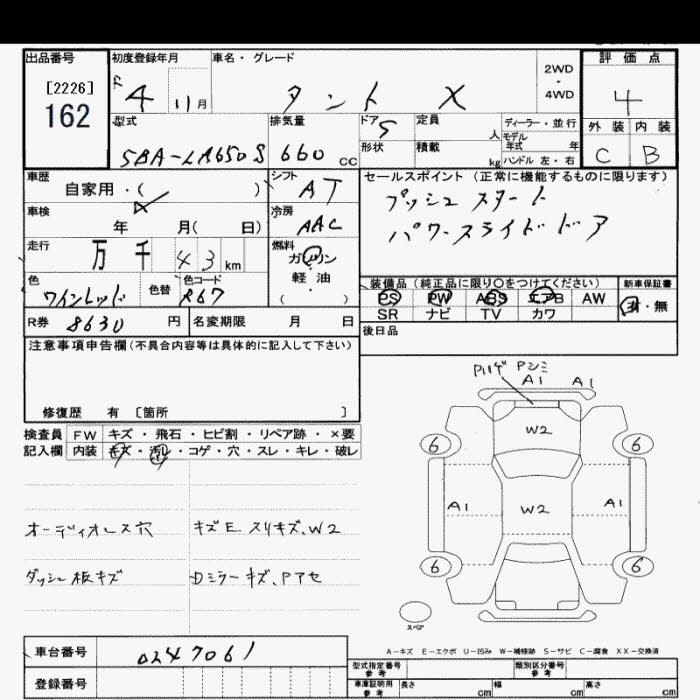 出品番号 初度登録年月 車名・グレード 2WD・4WD 評価点
[2226] R 4 11月 タント X 4
162 型式 排気量 ドア 5 定員 人 ディーラー・並行 外装 内装
5BA-LA650S 660cc 形状 積載 kg モデル年式 年 ハンドル 左・右 C B
車歴 自家用・( ) シフト AT セールスポイント(正常に機能するものに限ります)
車検 年 月( 日) 冷房 AAC プッシュスタート
パワースライドドア
走行 万 千 43 km 燃料 ガソリン・軽油・( )
色 ワインレッド 色替 色コード R67
装備品(純正品に限り〇をつけてください) 新車保証書
PS PW ABS エアB AW 有・無
SR ナビ TV カワ
R券 8630円 名変期限 月 日 後日品
注意事項申告欄(不具合内容等は具体的に記入して下さい)
修復歴 有 [箇所 ]
検査員記入欄 FW キズ・飛石・ヒビ割・リペア跡・×要
内装 キズ・汚レ・コゲ・穴・スレ・キレ・破レ
オーディオレス穴 キズE スリキズ、W2
ダッシュ板キズ Dミラーキズ、Pアセ
Pハゲ Pシミ
A1 A1
W2
6 6
A1 W2 A1
6 6
スペア
A-キズ E-エクボ U-凹み W-補修跡 S-サビ C-腐食 XX-交換済
車台番号 0247061
登録番号
型式指定番号 参考 類別区分番号 参考
車庫証明用 参考 長さ cm 幅 cm 高さ cm